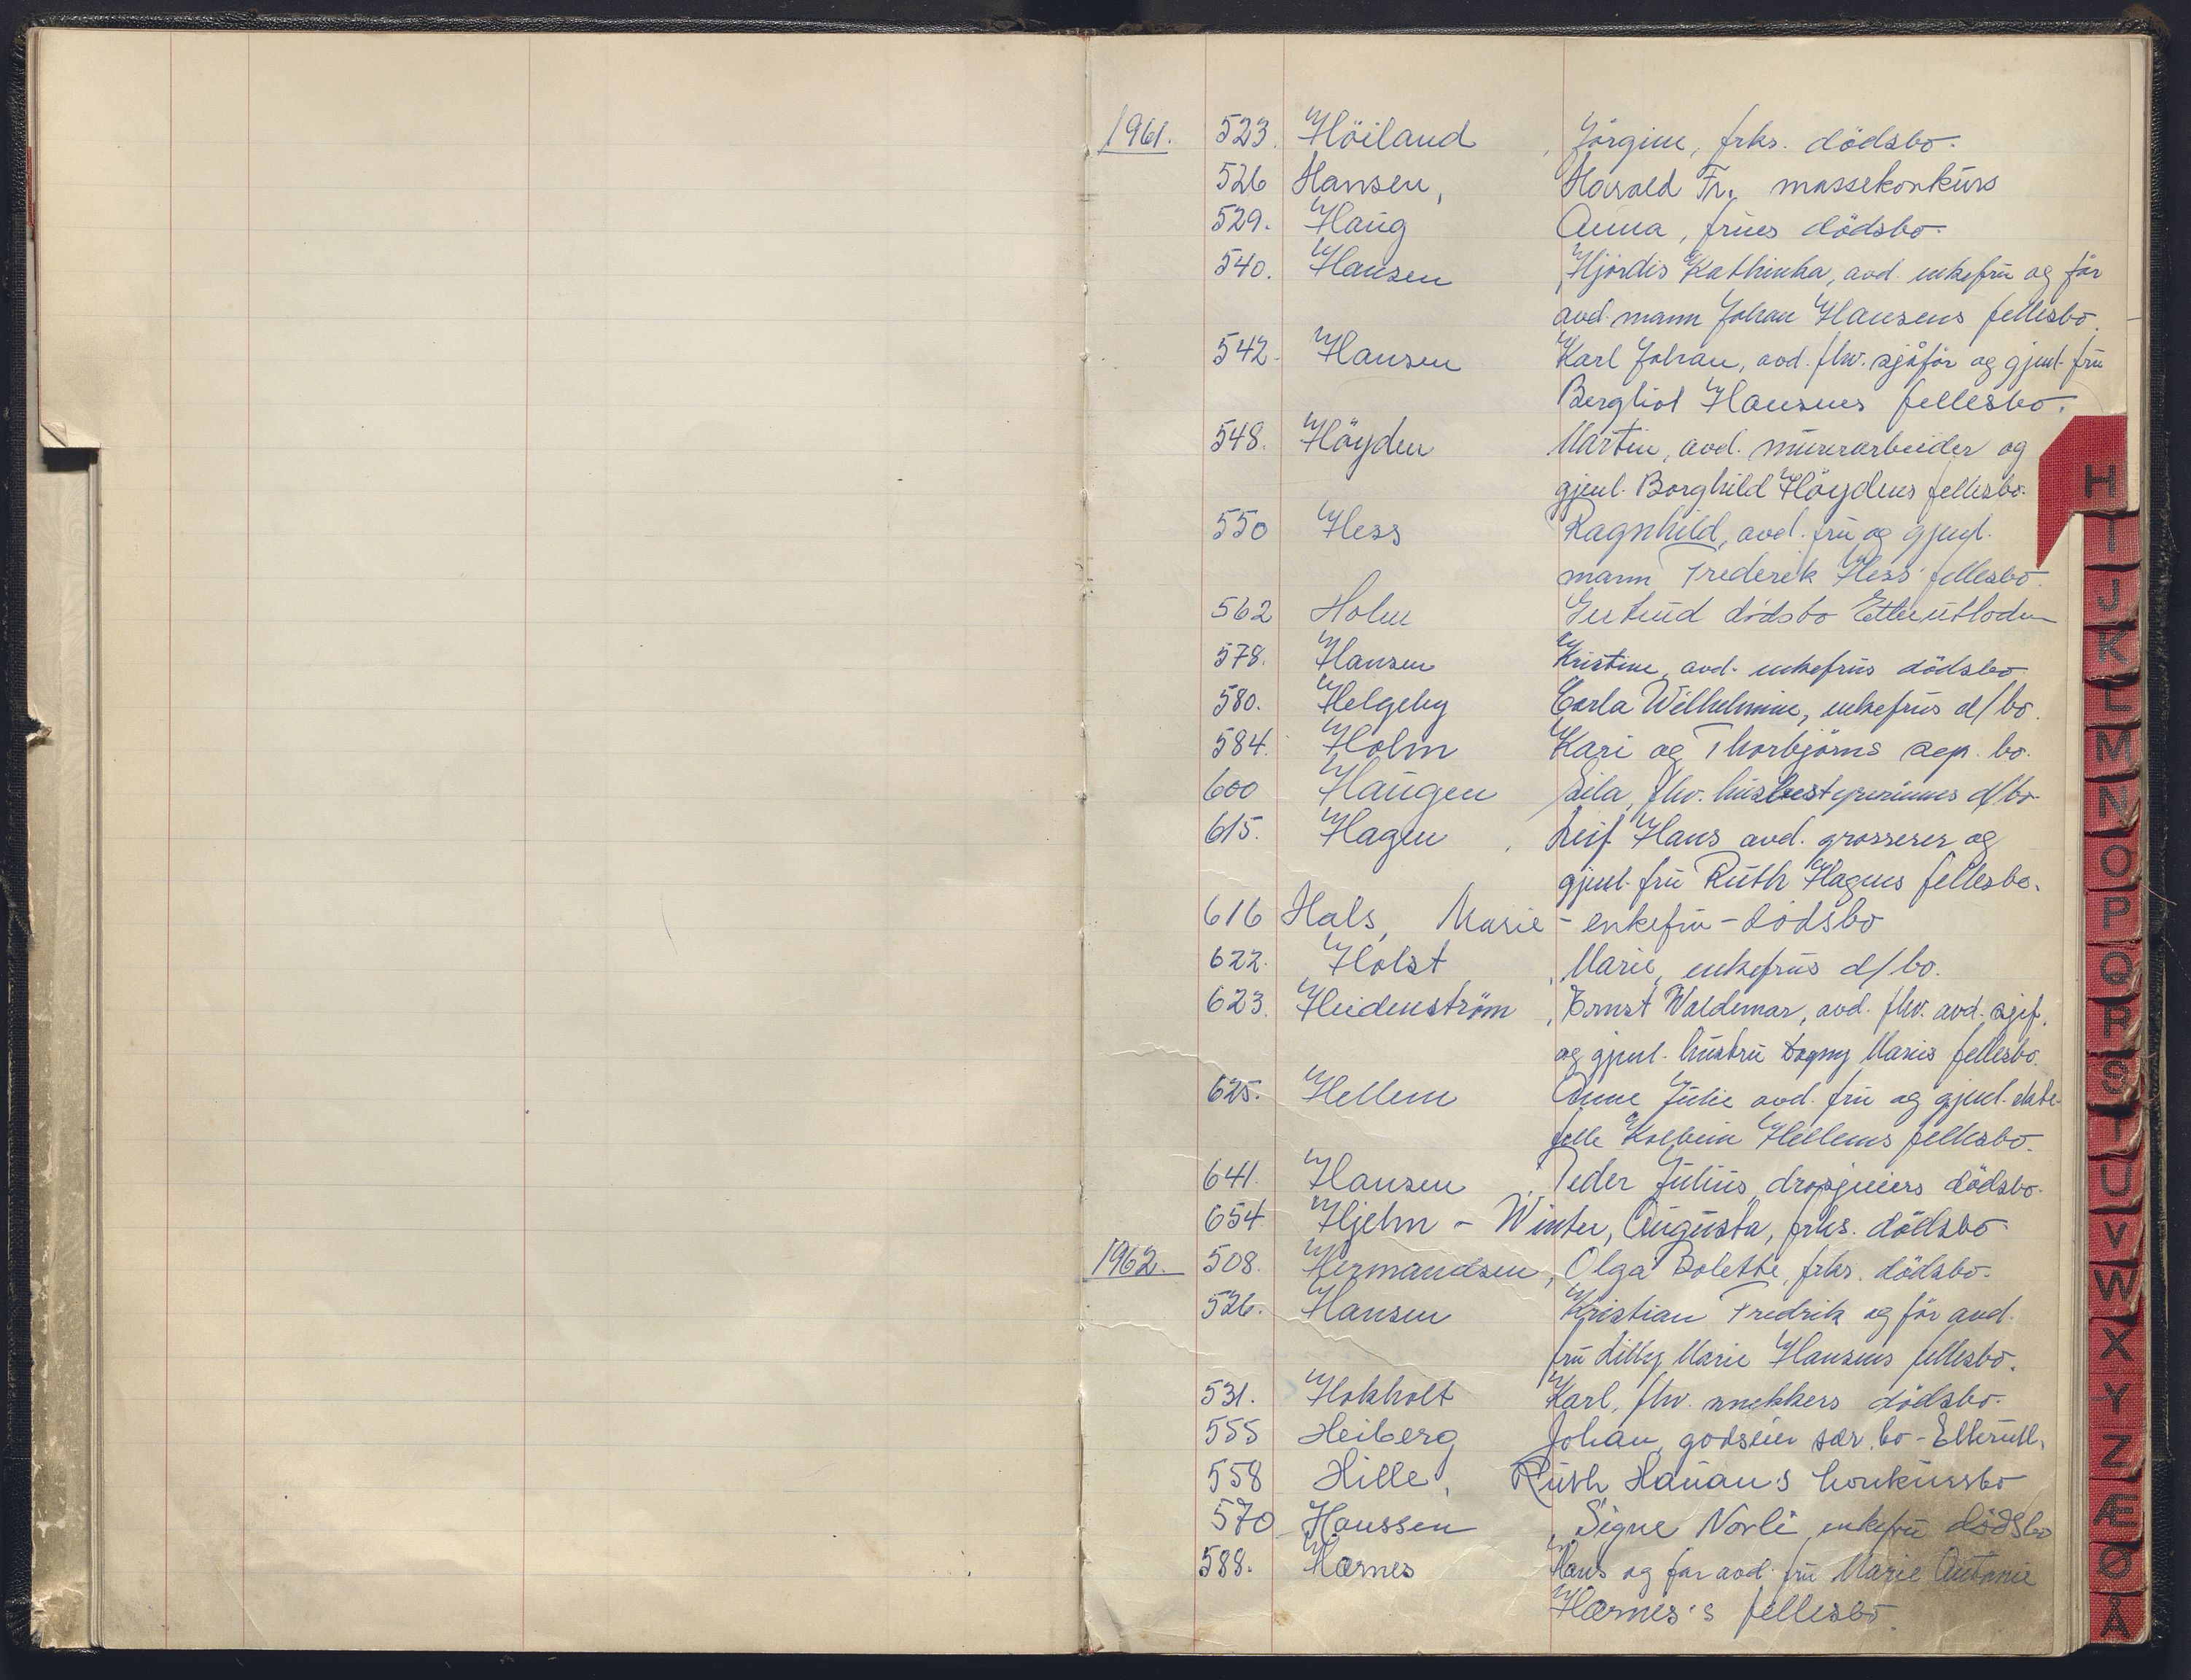 1961. 523. Höiland, Jörgine, frks. dödsbo.
526 Hansen, Harald Fr. massekonkurs
529. Haug Anna, frues dödsbo.
540. Hansen, Hjördis Kathinka, avd. enkefru og för
avd. mann Johan Hansens fellesbo.
542. Hansen Karl Johan, avd. fhv. sjåför og gjenl. fru
Bergliot Hansens fellesbo.
548. Höyden Martin, avd. murerarbeider og
gjenl. Borghild Höydens fellesbo.
550 Hess Ragnhild, avd. fru og gjenl.
mann Frederik Hess' fellesbo.
562 Holm Gertrud dödsbo Etterutlodn
578. Hansen Kristine, avd. enkefrus dödsbo.
580. Helgeby Carla Wilhelmine, enkefrus d/bo.
584. Holm Kari og Thorbjörns sep. bo.
600 Haugen, fhv. husbestyrerinnes d/bo.
615. Hagen, Leif Hans avd. grosserer og
gjenl. fru Ruth Hagens fellesbo.
616 Hals, Marie - enkefru - dödsbo
622. Holst, Marie, enkefrus d/bo.
623. Heidenström, Ernst Waldemar, avd. fhv. avd. sjef.
og gjenl. hustru Dagny Maries fellesbo.
625. Hellem Anne Julie avd. fru og gjenl. ekte-
felle Kolbein Hellems fellesbo.
641. Hansen, Peder Julius, drosjeeiers dödsbo.
654 Hjelm - Winter, Augusta, frks. dödsbo.
1962. 508. Hermandsen, Olga Bolette, frks. dödsbo.
526. Hansen Kristian Fredrik og för avd.
fru Lilly Marie Hansens fellesbo.
531. Hokholt Karl, fhv. snekkers dödsbo.
555 Heiberg Johan, godseier sær.bo - Etterutl.
558 Hille, Ruth Hauan's konkursbo
570 Hanssen, Signe Norli enkefru dödsbo
588. Harnes Hans og før avd. fru Marie Antonie
Harnes's fellesbo.
H
I
J
K
L
M
N
O
P
Q
R
S
T
U
V
W
X
Y
Z
Æ
Ø
Å